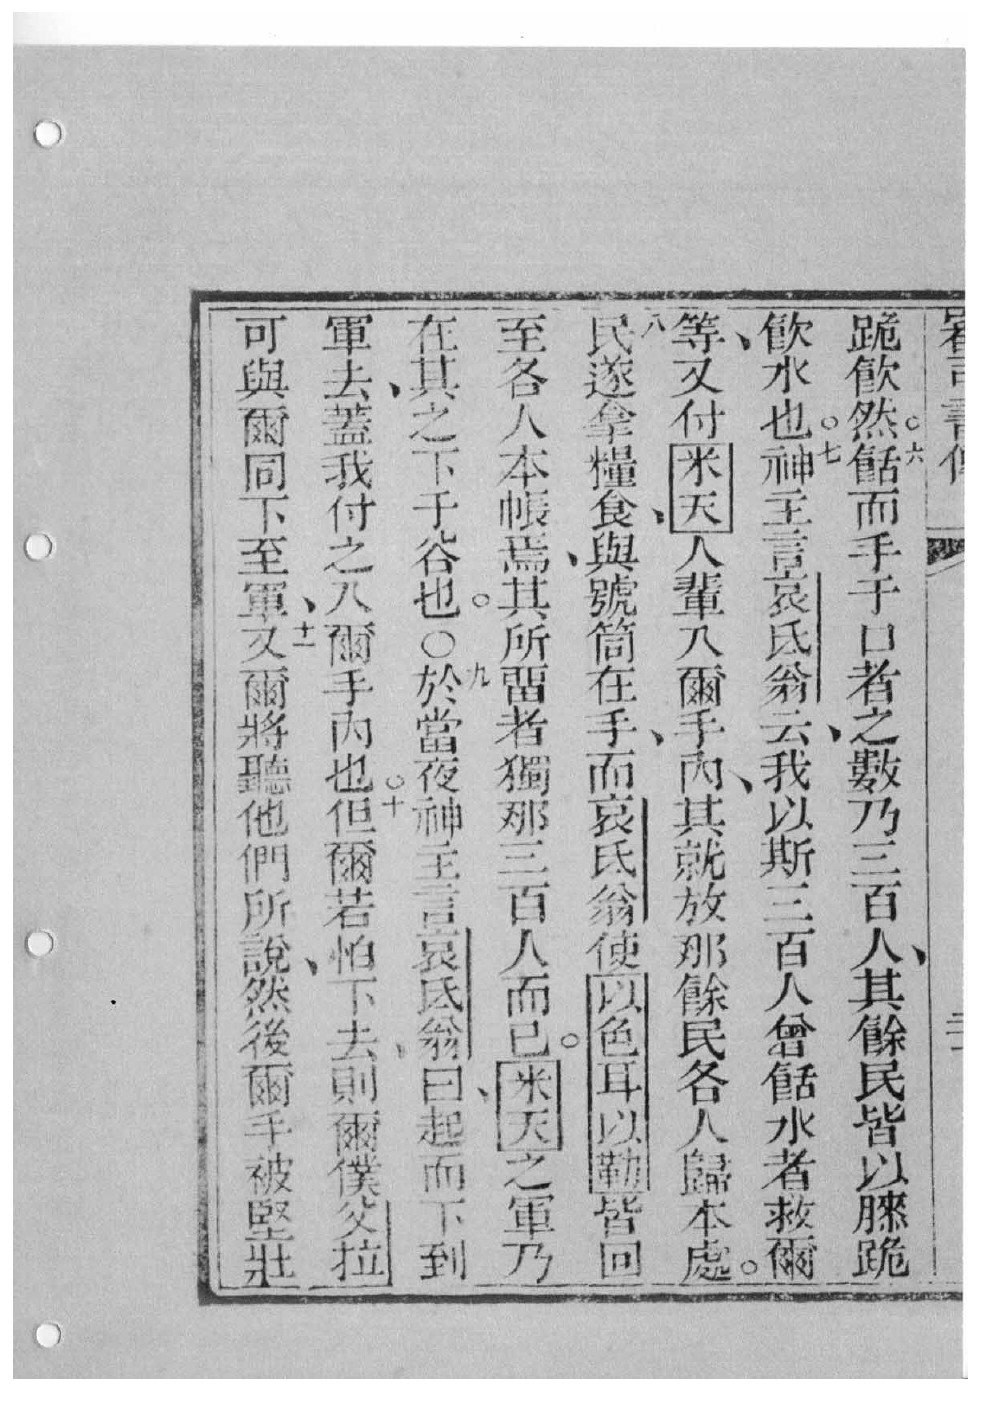 審司書傳
二十
跪飲。六然餂而手于口者之數乃三百人、其餘民皆以膝跪
飲水也。七神主言哀氐翁云、我以斯三百人曾餂水者救爾
等、又付米天人輩入爾手內、其就放那餘民各人歸本處。
八民遂拿糧食、與號筒在手、而哀氐翁使以色耳以勒皆回
至各人本帳焉、其所畱者獨那三百人而已。米天之軍乃
在其之下于谷也。○九於當夜神主言哀氐翁曰、起而下到
軍去、蓋我付之入爾手內也。十但爾若怕下去、則爾僕父拉
可與爾同下至軍、十一又爾將聽他們所說、然後爾手被堅壯